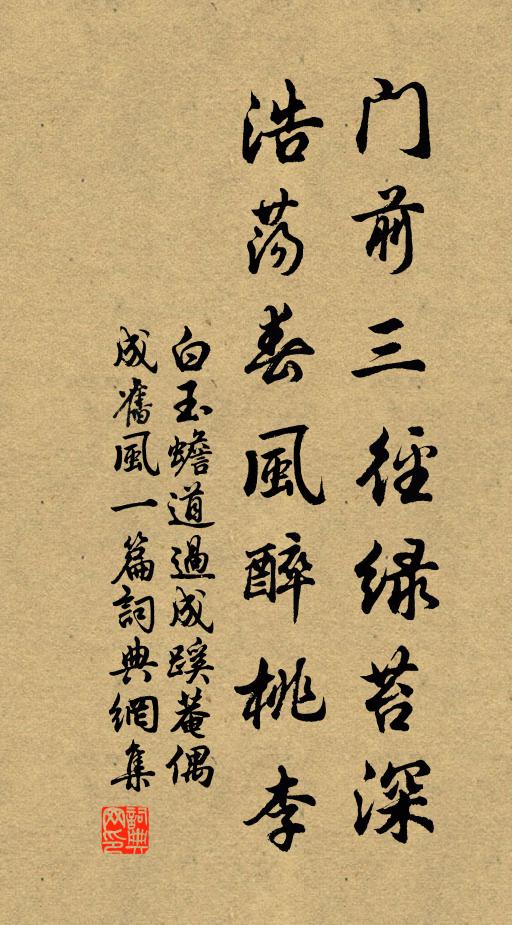 门前三径绿苔深
浩荡春風醉桃李
白玉蟾道過成蹊菴偶
成舊風一篇詞典網集
詞典